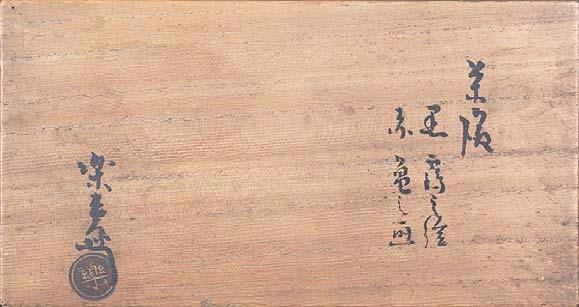 茶碗
黒 靏之絵
赤 亀之画
楽吉左衛門
樂